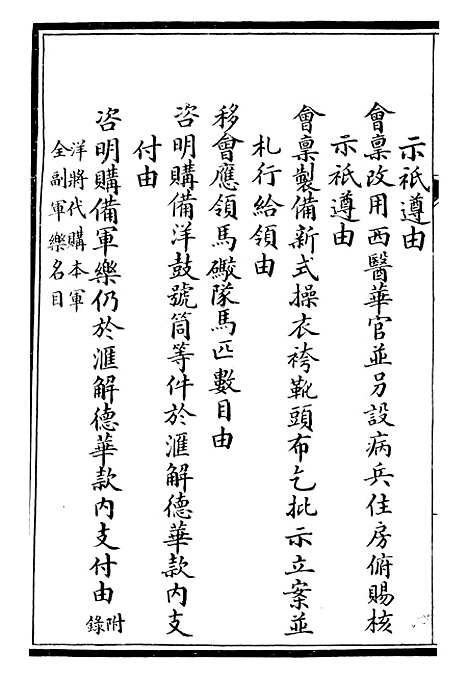 示祇遵由
會稟改用西醫華官並另設病兵住房俯賜核
示祇遵由
會稟製備新式操衣袴靴頭布乞批示立案並
札行給領由
移會應領馬礮隊馬匹數目由
咨明購備洋鼓號筒等件於滙解德華款內支
付由
咨明購備軍樂仍於滙解德華款內支付由
附錄
洋將代購本軍
全副軍樂名目